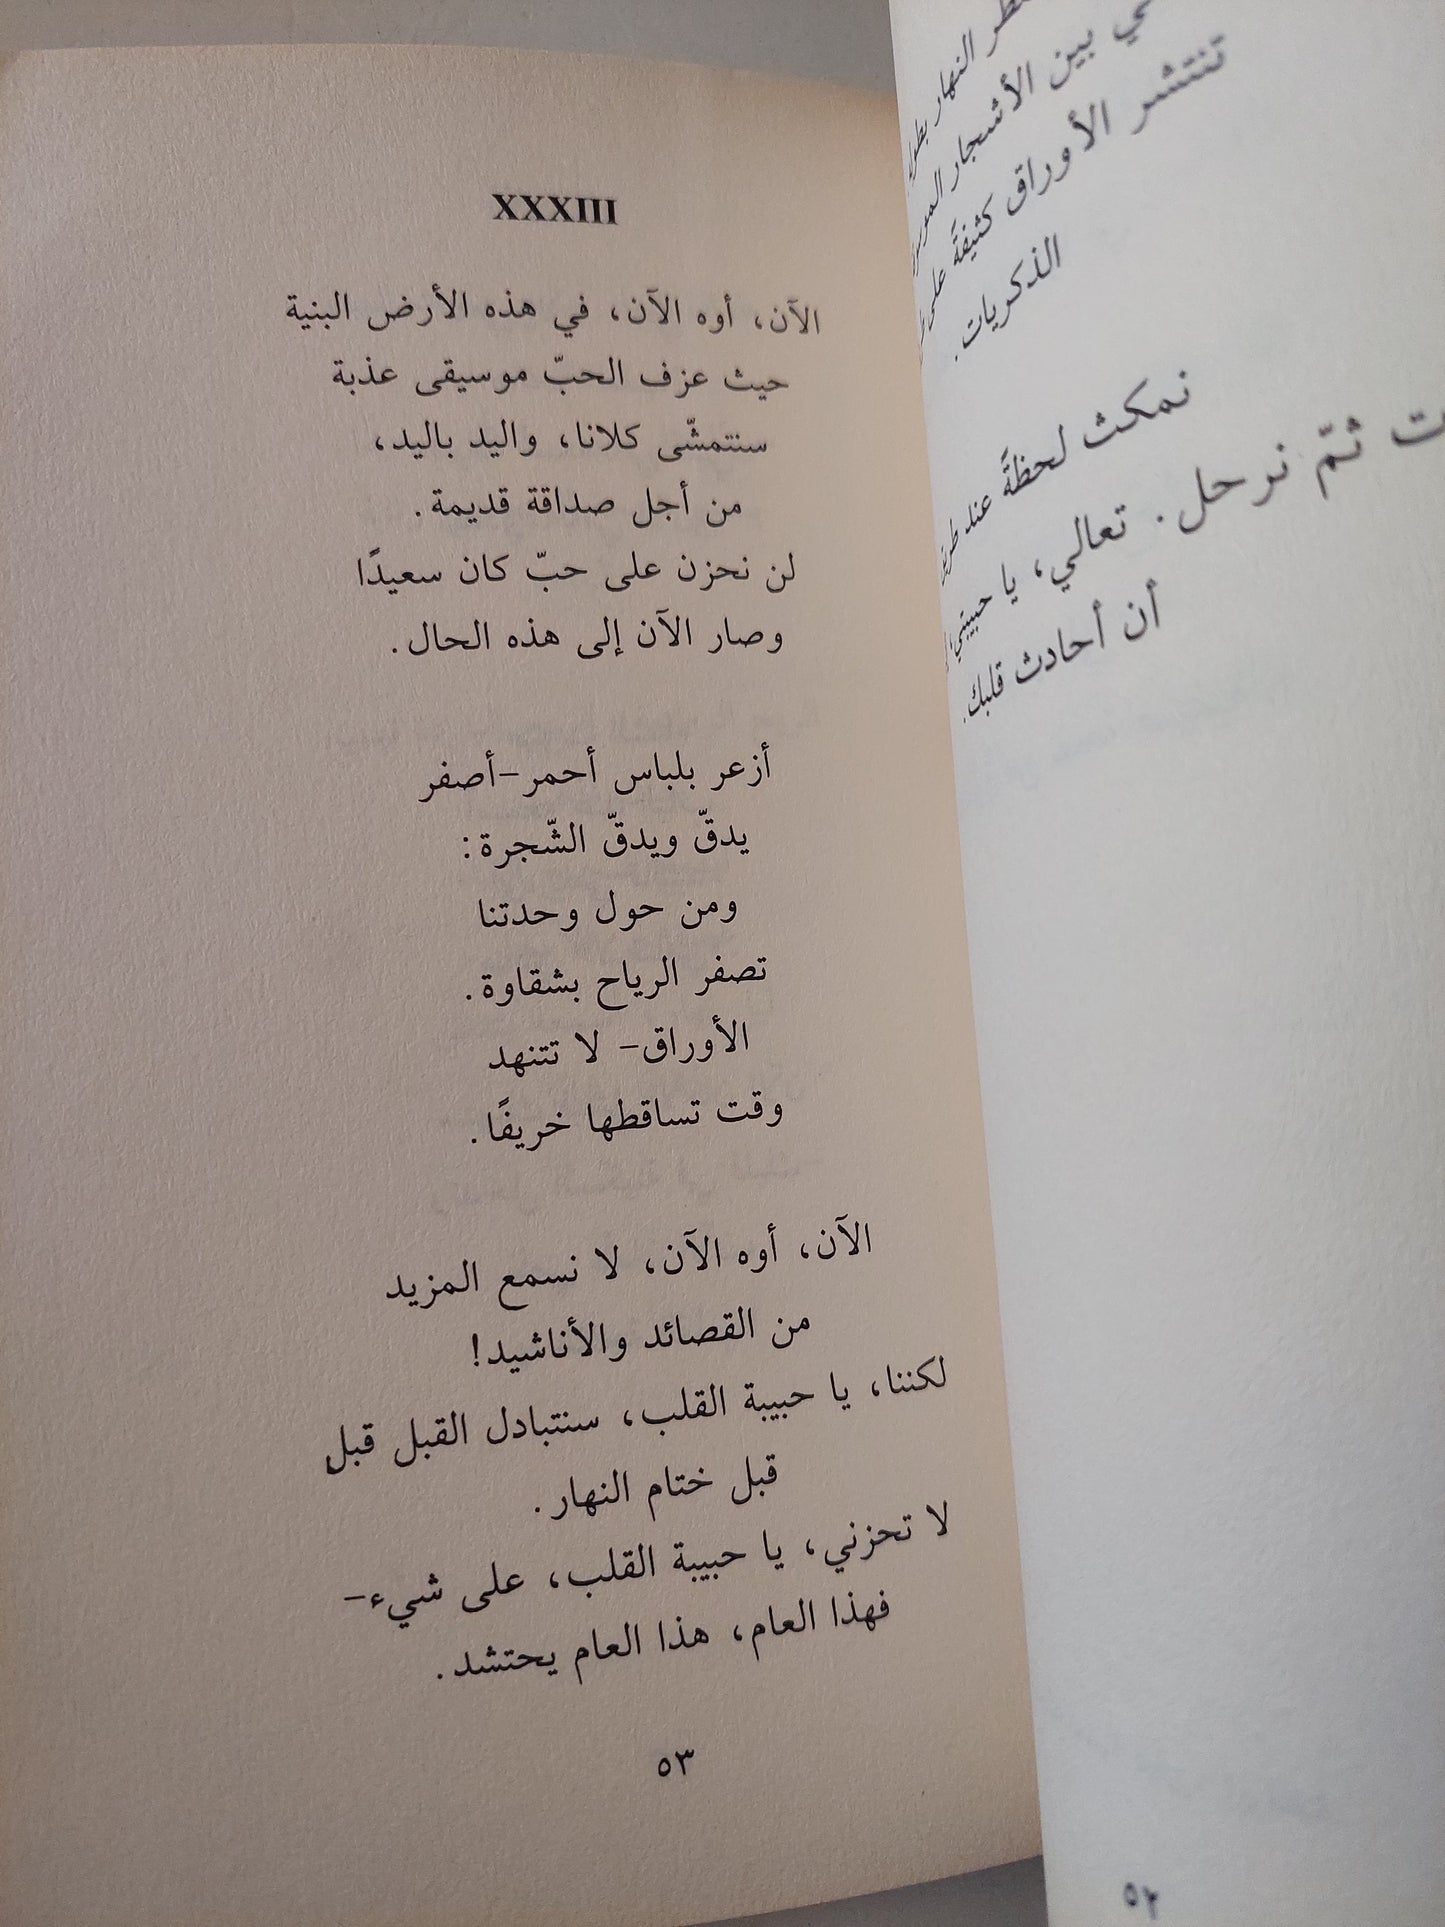 ـطر النهار بطول
ـي بين الأشجار
تنتشر الأوراق كثيفةً على
الذكريات.
نمكث لحظةً عند
ـت ثمّ نرحل. تعالي، يا حبيبتي،
أن أحادث قلبك.
٥٢
XXXIII
الآن، أوه الآن، في هذه الأرض البنية
حيث عزف الحبّ موسيقى عذبة
سنتمشّى كلانا، واليد باليد،
من أجل صداقة قديمة.
لن نحزن على حبّ كان سعيدًا
وصار الآن إلى هذه الحال.
أزعر بلباس أحمر-أصفر
يدقّ ويدقّ الشّجرة:
ومن حول وحدتنا
تصفر الرياح بشقاوة.
الأوراق- لا تتنهد
وقت تساقطها خريفًا.
الآن، أوه الآن، لا نسمع المزيد
من القصائد والأناشيد!
لكننا، يا حبيبة القلب، سنتبادل القبل قبل
قبل ختام النهار.
لا تحزني، يا حبيبة القلب، على شيء-
فهذا العام، هذا العام يحتشد.
٥٣